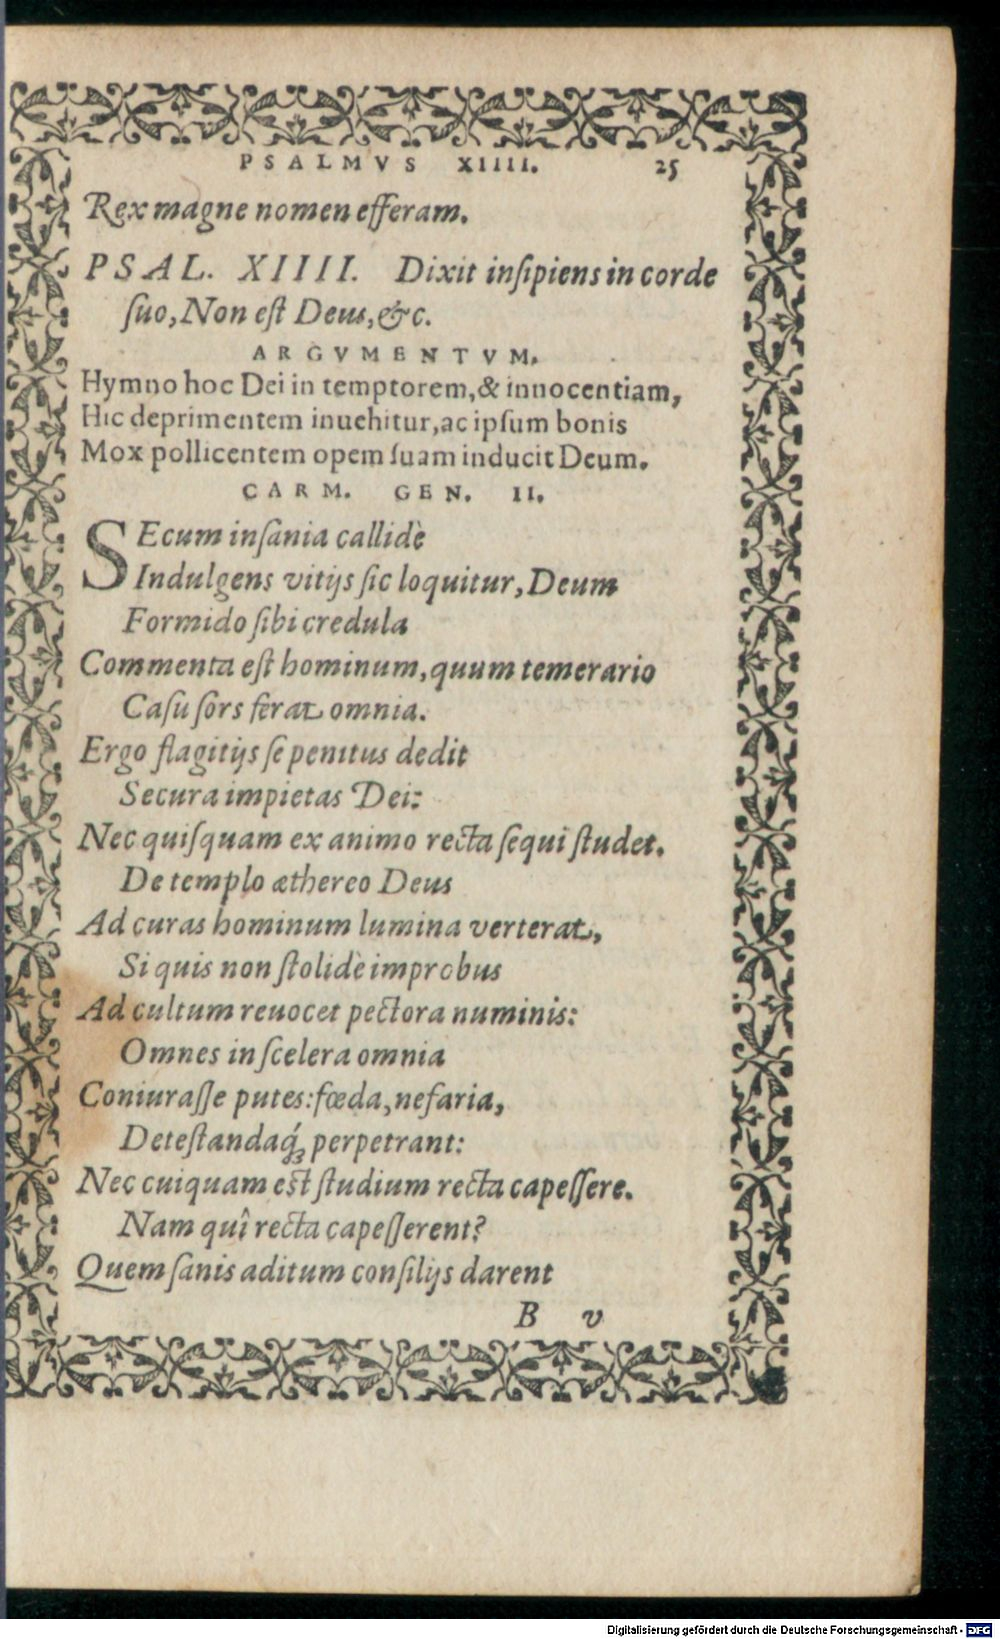 PSALMVS XIIII. 25
Rex magne nomen efferam.
PSAL. XIIII. Dixit inſipiens in corde
ſuo, Non eſt Deus, &c.
ARGVMENTVM.
Hymno hoc Dei in temptorem, & innocentiam,
Hic deprimentem inuehitur, ac ipſum bonis
Mox pollicentem opem ſuam inducit Deum.
CARM. GEN. II.
SEcum inſania callidè
Indulgens vitijs ſic loquitur, Deum
Formido ſibi credula
Commenta eſt hominum, quum temerario
Caſu ſors ferat omnia.
Ergo flagitijs ſe penitus dedit
Secura impietas Dei:
Nec quiſquam ex animo recta ſequi ſtudet.
De templo æthereo Deus
Ad curas hominum lumina verterat,
Si quis non ſtolidè improbus
Ad cultum reuocet pectora numinis:
Omnes in ſcelera omnia
Coniuraſſe putes: fœda, nefaria,
Deteſtandaq́ꝫ perpetrant:
Nec cuiquam eſt ſtudium recta capeſſere.
Nam quî recta capeſſerent?
Quem ſanis aditum conſilijs darent
B v
Digitalisierung gefördert durch die Deutsche Forschungsgemeinschaft - DFG